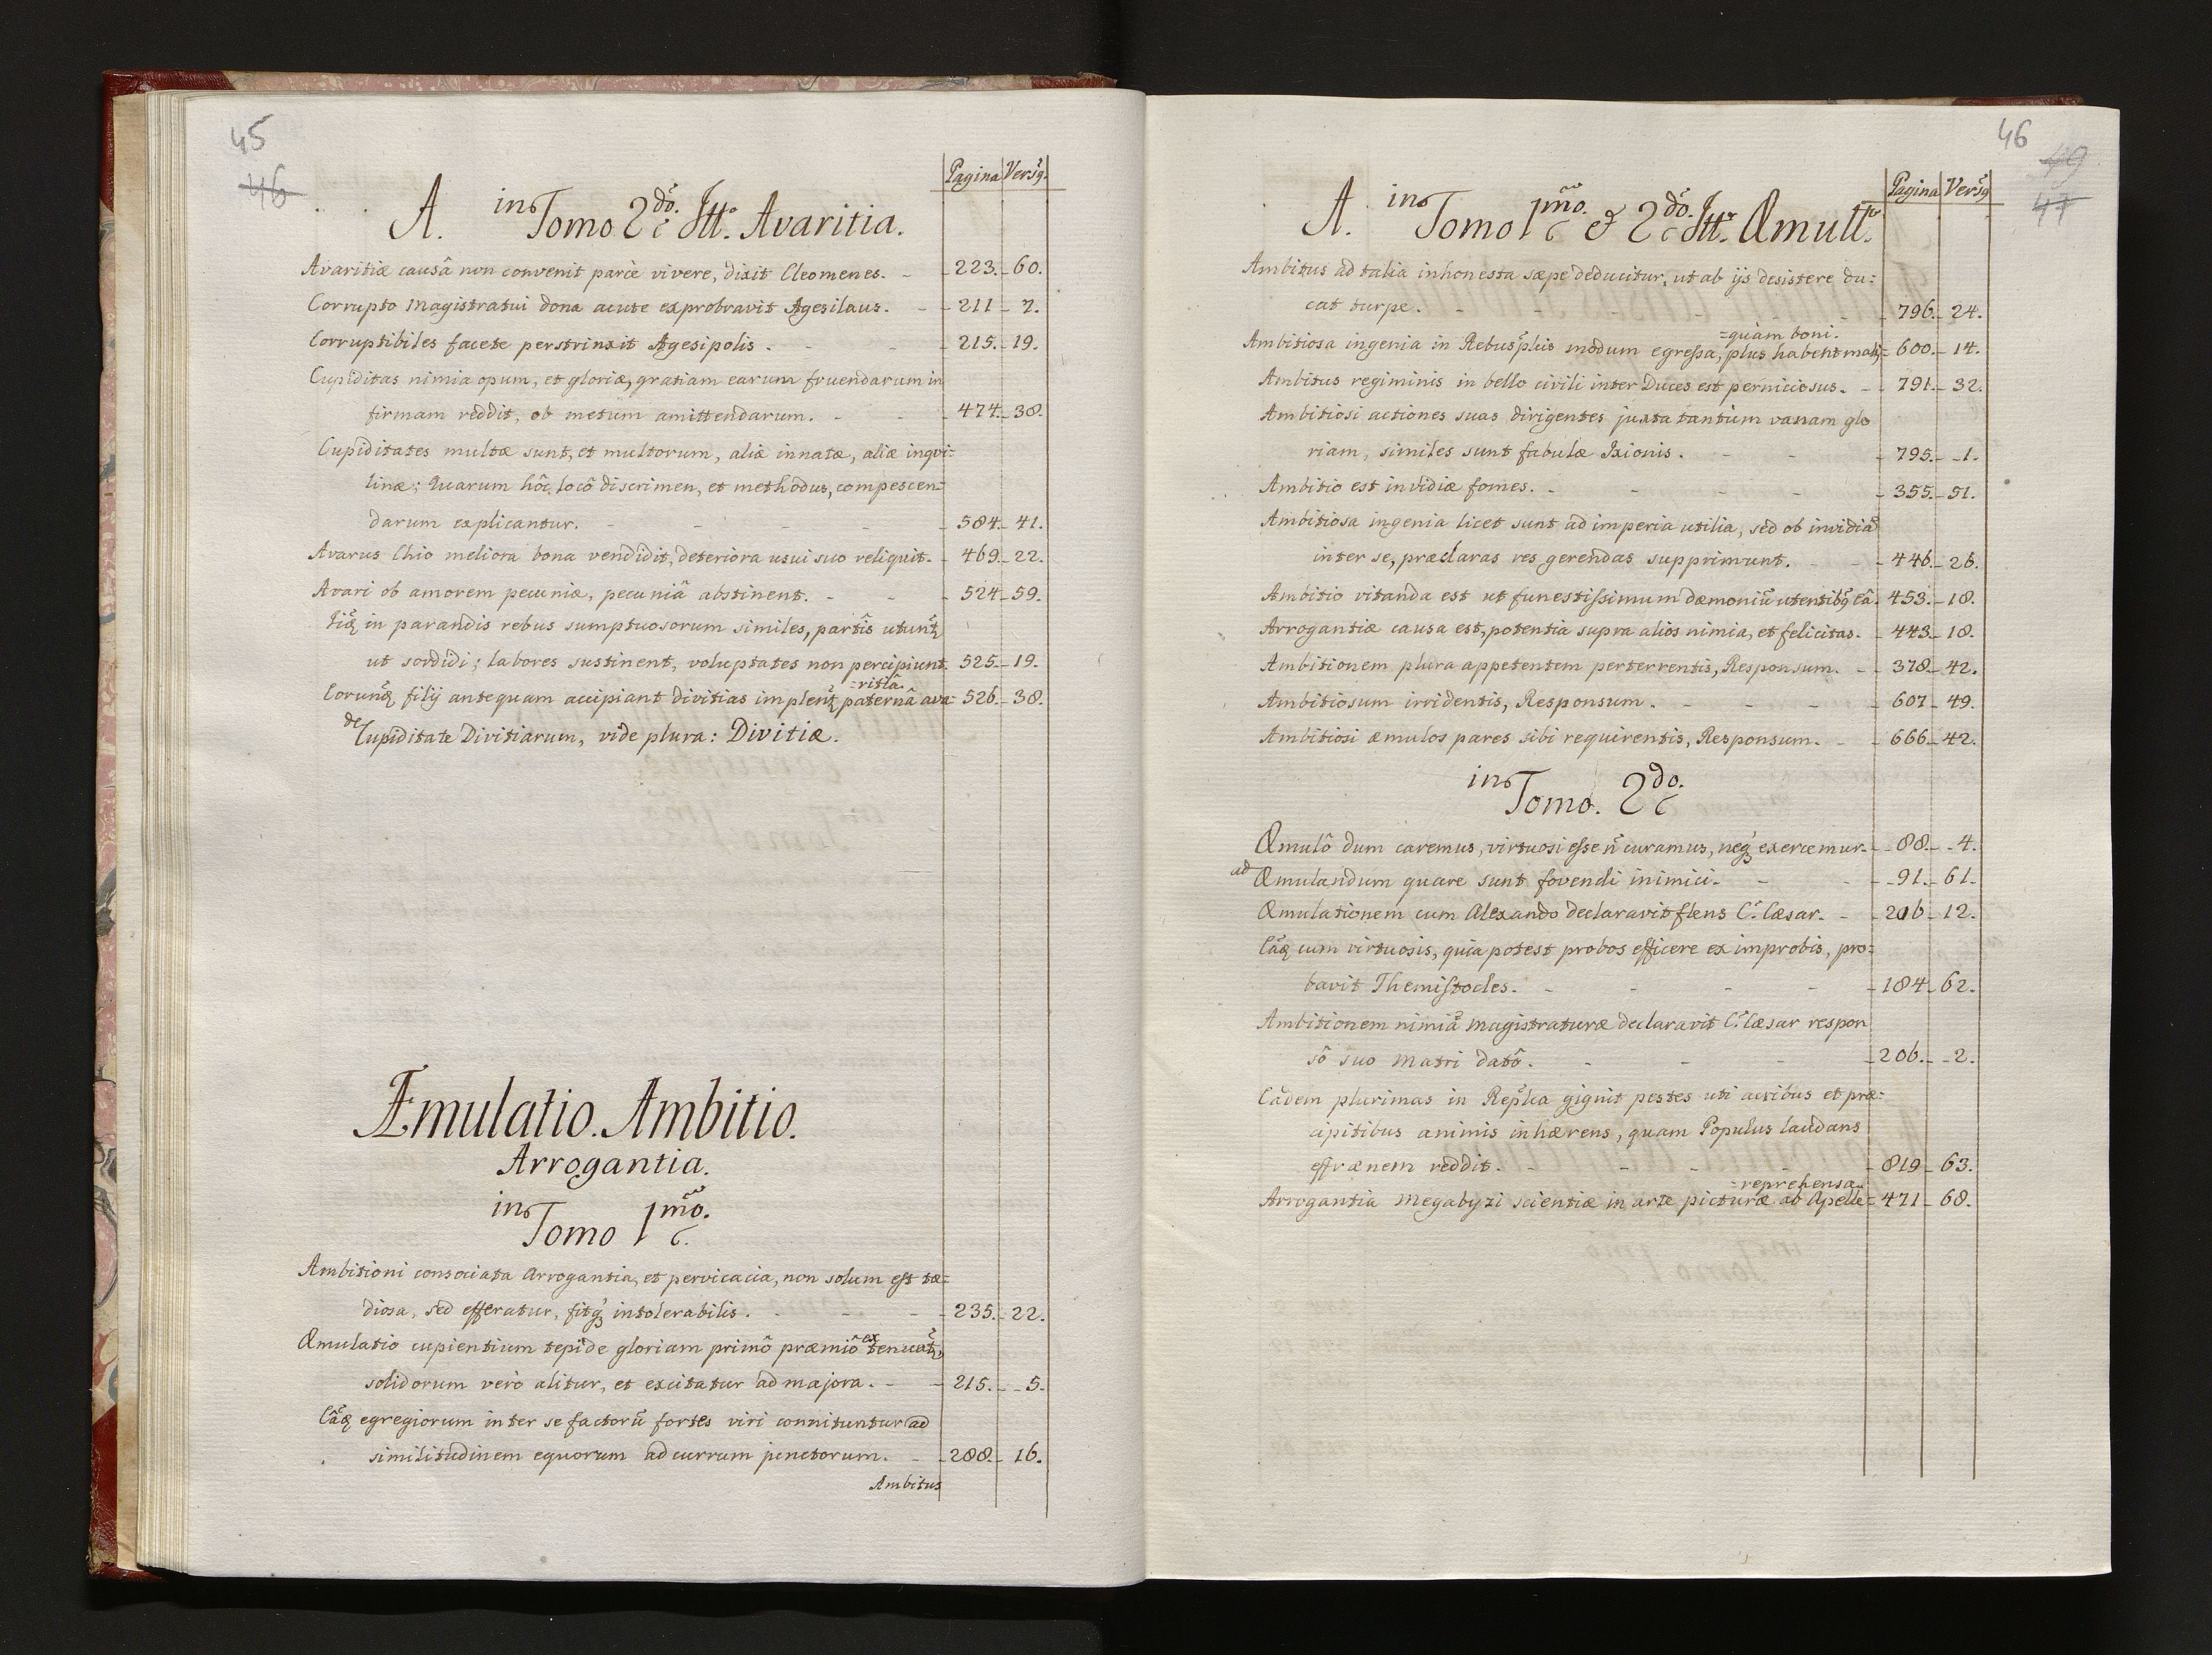 45
46
Pagina Versq.
A. in Tomo 2do. Itt. Avaritia.
Avaritiæ causâ non convenit parcè vivere, dixit Cleomenes. - 223. - 60.
Corrupto Magistratui dona acute exprobravit Agesilaus. - 211 - 7.
Corruptibiles facete perstrinxit Agesipolis. - 215. - 19.
Cupiditas nimia opum, et gloriæ, gratiam earum fruendarum in
firmam reddit, ob metum amittendarum. - 474. - 38.
Cupiditates multæ sunt, et multorum, aliæ innatæ, aliæ inqui=
linæ; Quarum hôc locô discrimen, et methodus, compescen=
darum explicantur. - 584. - 41.
Avarus Chio meliora bona vendidit, deteriora usui suo reliquit. - 469. - 22.
Avari ob amorem pecuniæ, pecuniâ abstinent. - 524 - 59.
in parandis rebus sumptuosorum similes, partîs
ut sordidi; labores sustinent, voluptates non percipiunt. 525. - 19.
=ritiâ.
filij antequam accipiant divitias paternâ ava= 526. - 38.
de Cupiditate Divitiarum, vide plura: Divitiæ.
Æmulatio. Ambitio.
Arrogantia.
in Tomo 1mo.
Ambitioni consociata Arrogantia, et pervicacia, non solum est tæ=
diosa, sed efferatur, fitq3 intolerabilis. - 235. - 22.
Æmulatio cupientium tepide gloriam primô præmiô
solidorum verò alitur, et excitatur ad majora. - 215. - 5.
egregiorum inter se factorū fortes viri connituntur ad
similitudinem equorum ad currum junctorum. - 288. - 16.
Ambitus
46
49
47
Pagina Versq
A. in Tomo 1mo. & 2do. Itt. Æmult.
Ambitus ad talia inhonesta sæpe deducitur, ut ab ijs desistere du=
cat turpe. - 796. - 24.
=quàm boni.
Ambitiosa ingenia in modum egressa, plus habent mali= 600. - 14.
Ambitus regiminis in bello civili inter Duces est perniciosus. - 791. - 32.
Ambitiosi actiones suas dirigentes juxta tantùm vanam glo
riam, similes sunt fabulæ Ixionis. - 795. - 1.
Ambitio est invidiæ fomes. - 355. - 51.
Ambitiosa ingenia licet sunt ad imperia utilia, sed ob invidiā
inter se, præclaras res gerendas supprimunt. - 446. - 26.
Ambitio vitanda est ut funestissimum dæmoniū utentibq eâ. 453. - 18.
Arrogantiæ causa est, potentia supra alios nimia, et felicitas. - 443. - 18.
Ambitionem plura appetentem perterrentis, Responsum. - 378. - 42.
Ambitiosum irridentis, Responsum. - 607 - 49.
Ambitiosi æmulos pares sibi requirentis, Responsum. - 666 - 42.
in Tomo. 2do.
Æmulô dum caremus, virtuosi esse ñ curamus, neq3 exercemur. - 88. - 4.
ad Æmulandum quare sunt fovendi inimici. - 91. - 61.
Æmulationem cum Alexando declaravit flens C. Cæsar. - 206 - 12.
cum virtuosis, quia potest probos efficere ex improbis, pro=
bavit Themistocles. - 184 - 62.
Ambitionem nimiā Magistraturæ declaravit C. Cæsar respon
sô suo Matri datô. - 206. - 2.
Eâdem plurimas in gignit pestes uti acribus et præ=
cipitibus animis inhærens, quam Populus laudans
effrænem reddit. - 819 - 63.
=reprehensa.
Arrogantia Megabyzi scientiæ in arte picturæ ab Apelle= 471 - 68.